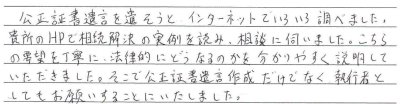 公正証書遺言を遺そうと インターネットでいろいろ調べました。
貴所のHPで相続解決の実例を読み、相談に伺いました。こちら
の要望を丁寧に、法律的にどうなるのかを分かりやすく説明して
いただきました。そこで公正証書遺言作成だけでなく執行者と
してもお願いすることにいたしました。